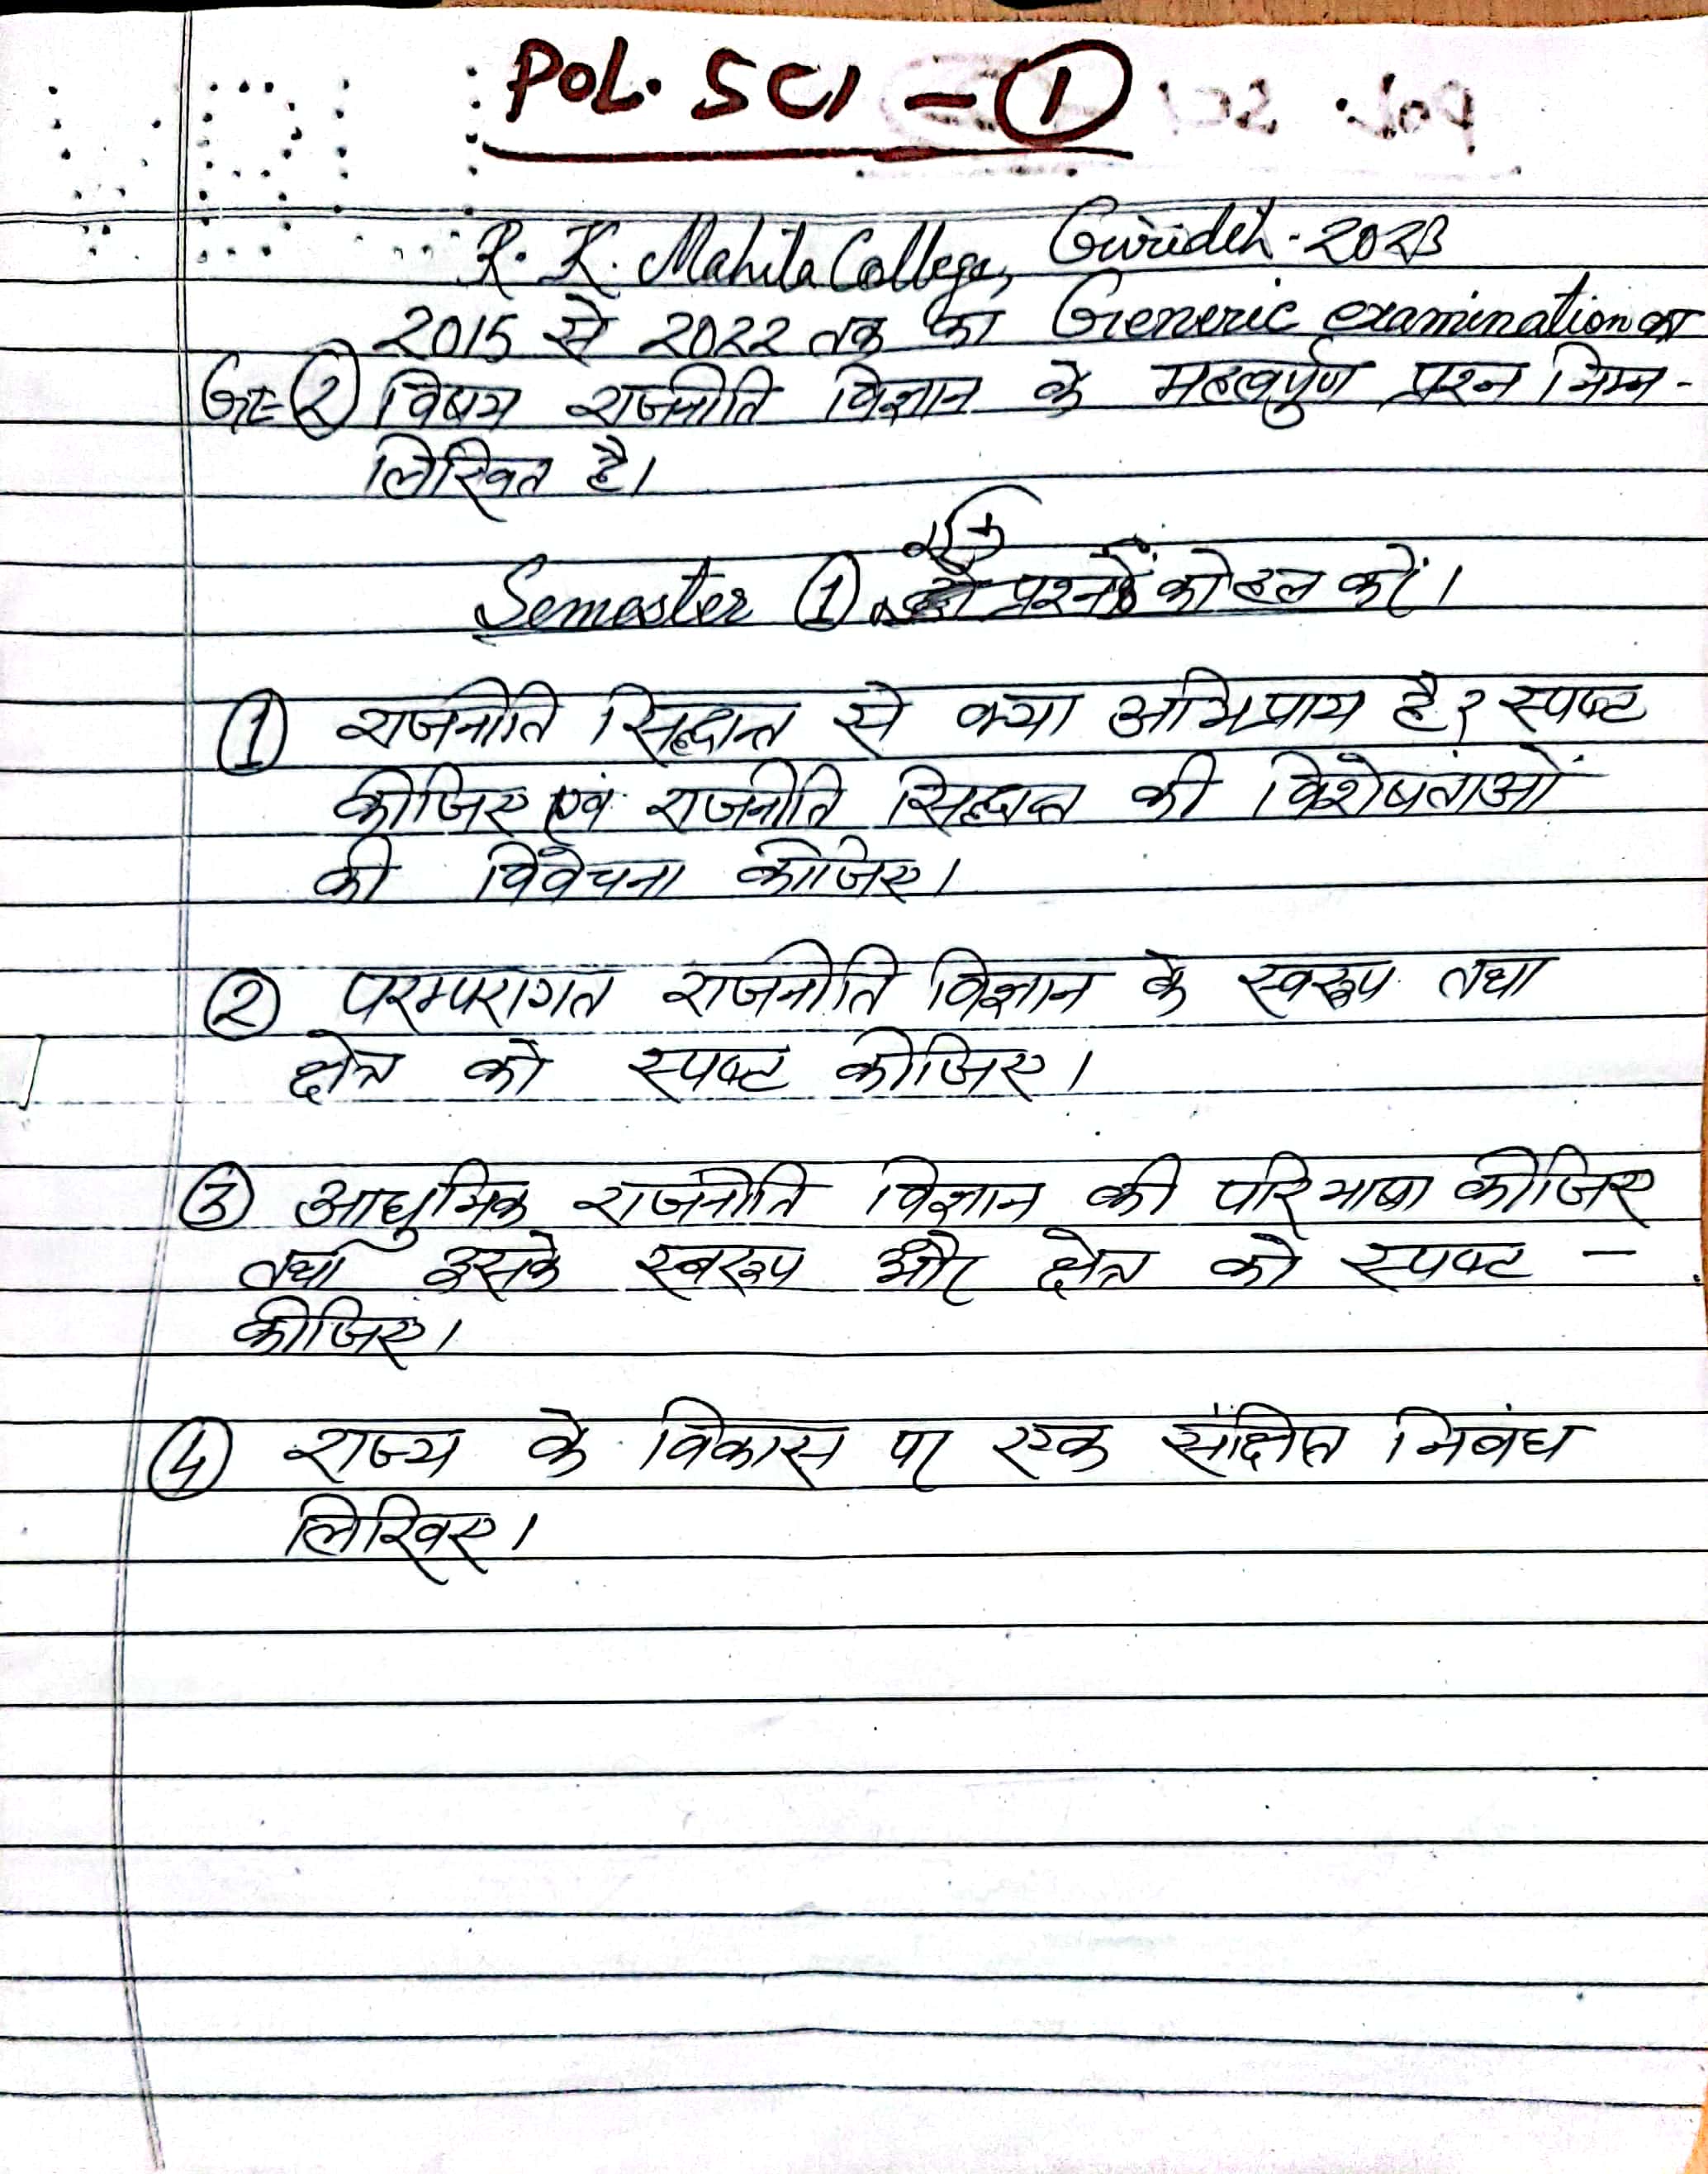 POL. SCI - ①
R. K. Mahila College, Giridih - 2023
2015 से 2022 तक का Generic examination का
GE-② विषय राजनीति विज्ञान के महत्वपुर्ण प्रश्न निम्न-
लिखित है।
Semester ① प्रश्नों को हल करें।
① राजनीति सिद्धान्त से क्या अभिप्राय है? स्पष्ट
कीजिए एवं राजनीति सिद्धान्त की विशेषताओं
की विवेचना कीजिए।
② परम्परागत राजनीति विज्ञान के स्वरूप तथा
क्षेत्र को स्पष्ट कीजिए।
③ आधुनिक राजनीति विज्ञान की परिभाषा कीजिए
तथा इसके स्वरूप और क्षेत्र को स्पष्ट -
कीजिए।
④ राज्य के विकास पर एक संक्षिप्त निबंध
लिखिए।